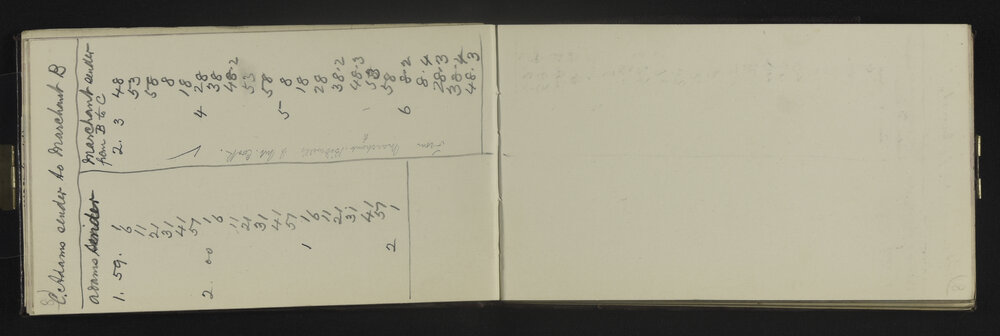 C. Adams sender to Marchant B
Adams sender
1. 59. 1
6
11
21
31
41
51
2. 00 1
6
11
21
31
41
51
1 1
6
11
21
31
41
51
2 1
Marchant sender
from B to C
2. 3 48
53
58
8
18
4 28
38
48.2
53
58
5 8
18
28
38.2
48.3
53
58
6 8.2
8.4
28.3
38.4
48.3
From Marchant